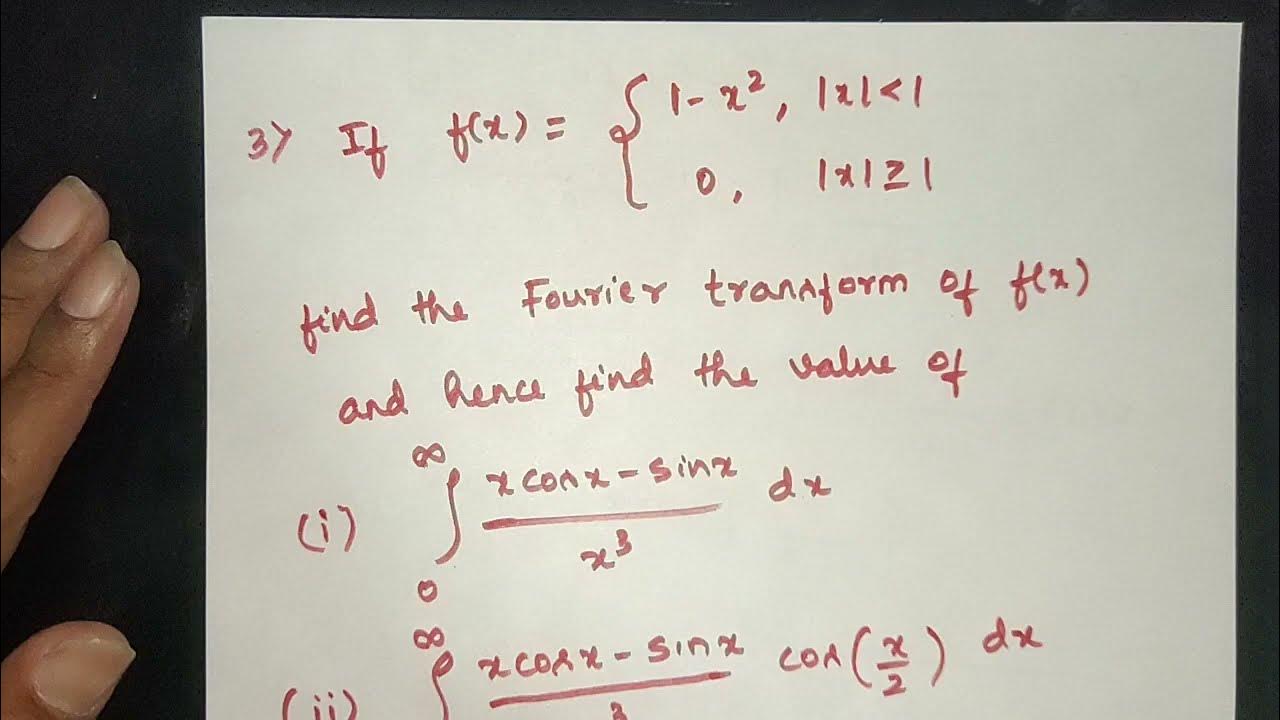 3) If f(x) = { 1 - x², |x| < 1
0, |x| ≥ 1
find the Fourier transform of f(x)
and hence find the value of
(i) ∫₀^∞ (x cos x - sin x)/x³ dx
(ii) ∫^∞ (x cos x - sin x)/3 cos(x/2) dx